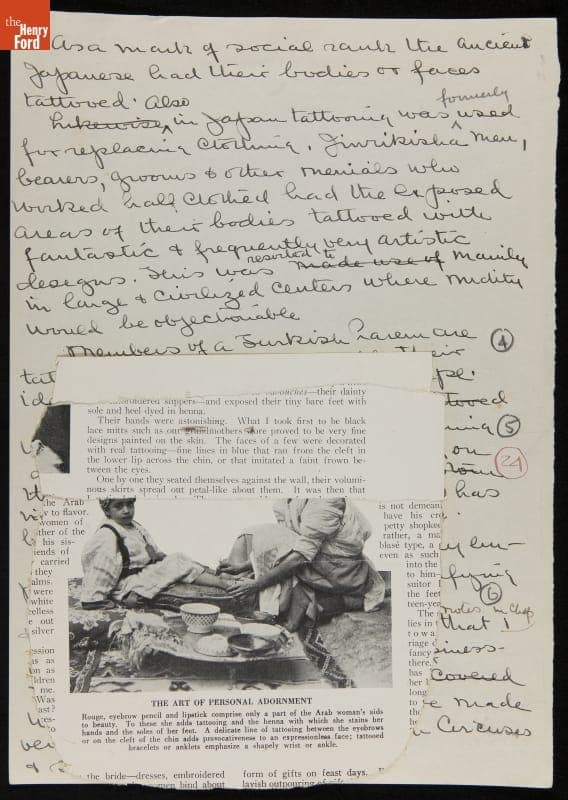 the
Henry
Ford
As a mark of social rank the ancient
Japanese had their bodies or faces
tattooed. Also
formerly
Likewise, in Japan tattooing was used
for replacing clothing. Jinrikisha men,
bearers, grooms & other menials who
worked half clothed had the exposed
areas of their bodies tattooed with
fantastic & frequently very artistic
resorted to
designs. This was made use of mainly
in large & civilized centers where nudity
would be objectionable
Members of a Turkish harem are
4
their
tat
tooed
5
24
on
has
fying
6
notes in Chap
that
iness-
covered
made
Circuses
babouches—their dainty
embroidered slippers—and exposed their tiny bare feet with
sole and heel dyed in henna.
Their hands were astonishing. What I took first to be black
lace mitts such as our grandmothers wore proved to be very fine
designs painted on the skin. The faces of a few were decorated
with real tattooing—fine lines in blue that ran from the cleft in
the lower lip across the chin, or that imitated a faint frown be-
tween the eyes.
One by one they seated themselves against the wall, their volumi-
nous skirts spread out petal-like about them. It was then that
the Arab
to flavor.
women of
ther of the
his sis-
iends of
carried
they
alms.
were
white
celless
e out
silver
ession
as as
on as
ldren
me.
Was
ast?
is not demean
have his cr
petty shopkee
rather, a ma
blasé type, a
even as such
into the
to him-
suitor
the feet
teen-yea
lies in
towa
riage
fancy
there,
has
her
long
to
the
THE ART OF PERSONAL ADORNMENT
Rouge, eyebrow pencil and lipstick comprise only a part of the Arab woman's aids
to beauty. To these she adds tattooing and the henna with which she stains her
hands and the soles of her feet. A delicate line of tattooing between the eyebrows
or on the cleft of the chin adds provocativeness to an expressionless face; tattooed
bracelets or anklets emphasize a shapely wrist or ankle.
the bride—dresses, embroidered
men bind about
form of gifts on feast days.
lavish outpouring of